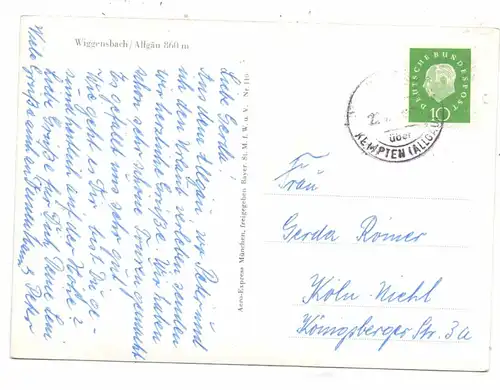 Wiggensbach/Allgäu 860 m
Liebe Gerda!
Aus dem Allgäu, wo Peter und
ich den Urlaub verleben senden
wir herzliche Grüße. Wir haben
schon sehr schöne Touren gemacht
Es gefällt uns sehr gut
Wie geht es Dir? Bist Du ge-
sundheitlich auf der Höhe?
Liebe Grüße für Dich Deine
Viele Grüße Peter
Aero-Express München, freigegeben Bayer. St. M. f. W. u. V. Nr.
DEUTSCHE BUNDESPOST
10
über
KEMPTEN (ALLGÄU)
Frau
Gerda Römer
Köln-Niehl
Königsberger Str. 3a